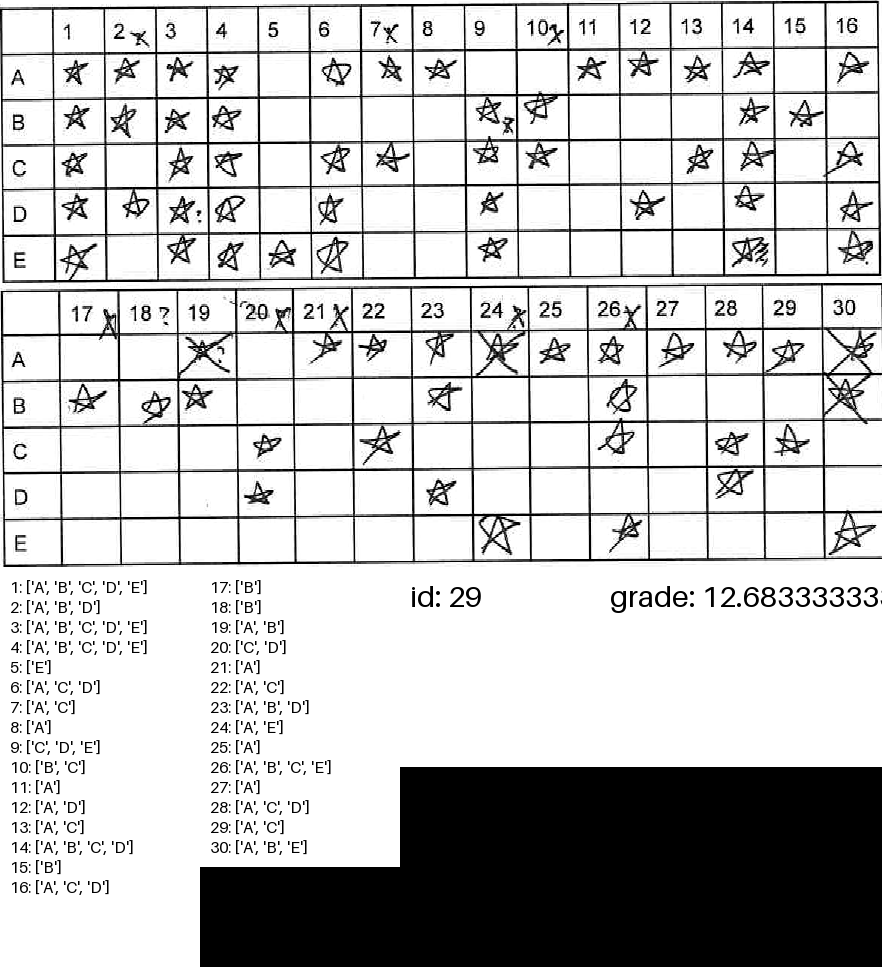 1 2 x 3 4 5 6 7 x 8 9 10 x 11 12 13 14 15 16
A
B ?
C
D ?
E ?
17 x 18 ? 19 20 x 21 x 22 23 24 x 25 26 x 27 28 29 30
A ?
B
C
D
E
1: ['A', 'B', 'C', 'D', 'E']
2: ['A', 'B', 'D']
3: ['A', 'B', 'C', 'D', 'E']
4: ['A', 'B', 'C', 'D', 'E']
5: ['E']
6: ['A', 'C', 'D']
7: ['A', 'C']
8: ['A']
9: ['C', 'D', 'E']
10: ['B', 'C']
11: ['A']
12: ['A', 'D']
13: ['A', 'C']
14: ['A', 'B', 'C', 'D']
15: ['B']
16: ['A', 'C', 'D']
17: ['B']
18: ['B']
19: ['A', 'B']
20: ['C', 'D']
21: ['A']
22: ['A', 'C']
23: ['A', 'B', 'D']
24: ['A', 'E']
25: ['A']
26: ['A', 'B', 'C', 'E']
27: ['A']
28: ['A', 'C', 'D']
29: ['A', 'C']
30: ['A', 'B', 'E']
id: 29
grade: 12.68333333